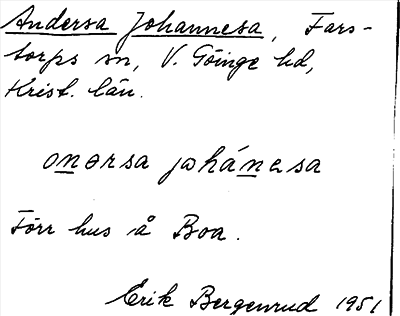 Andersa Johannesa, Fars-
torps sn, V. Göinge hd,
Krist. län.
onərsa johánəsa
Förr hus å Boa.
Erik Bergenrud 1951